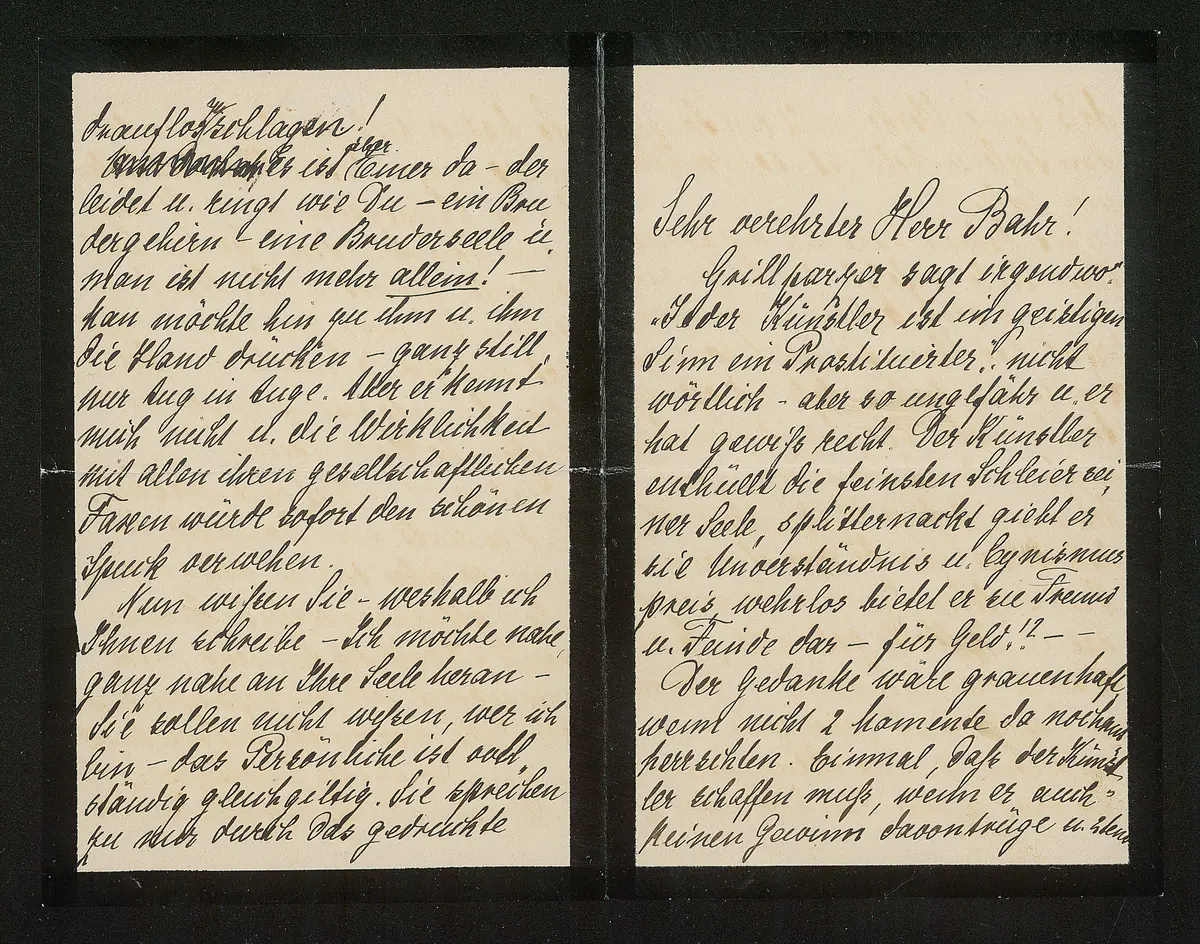 drauflos zu schlagen!
Es ist aber Einer da – der
leidet u. ringt wie Du – ein Bru
dergehirn – eine Bruderseele u.
man ist nicht mehr allein! —
Man möchte hin zu ihm u. ihm
die Hand drücken – ganz still,
nur Aug in Auge. Aber er kennt
mich nicht u. die Wirklichkeit
mit allen ihren gesellschaftlichen
Faxen würde sofort den schönen
Spuck verwehen.
Nun wißen Sie – weshalb ich
Ihnen schreibe – Ich möchte nahe,
ganz nahe an Ihre Seele heran –
Sie sollen nicht wißen, wer ich
bin – das Persönliche ist voll
ständig gleichgiltig. Sie sprechen
zu mir durch das gedruckte
Sehr verehrter Herr Bahr!
Grillparzer sagt irgendwo:
„Jeder Künstler ist im geistigen
Sinn ein Prostituierter". nicht
wörtlich – aber so ungefähr u. er
hat gewiß recht. Der Künstler
enthüllt die feinsten Schleier sei
ner Seele, splitternackt giebt er
sie Unverständnis u. Cynismus
preis, wehrlos bietet er sie Freund
u. Feinde dar – für Geld!? – –
Der Gedanke wäre grauenhaft,
wenn nicht 2 Momente da noch mit
herrschten. Einmal, daß der Künst
ler schaffen muß, wenn er auch
keinen Gewinn davontrüge u. 2tens